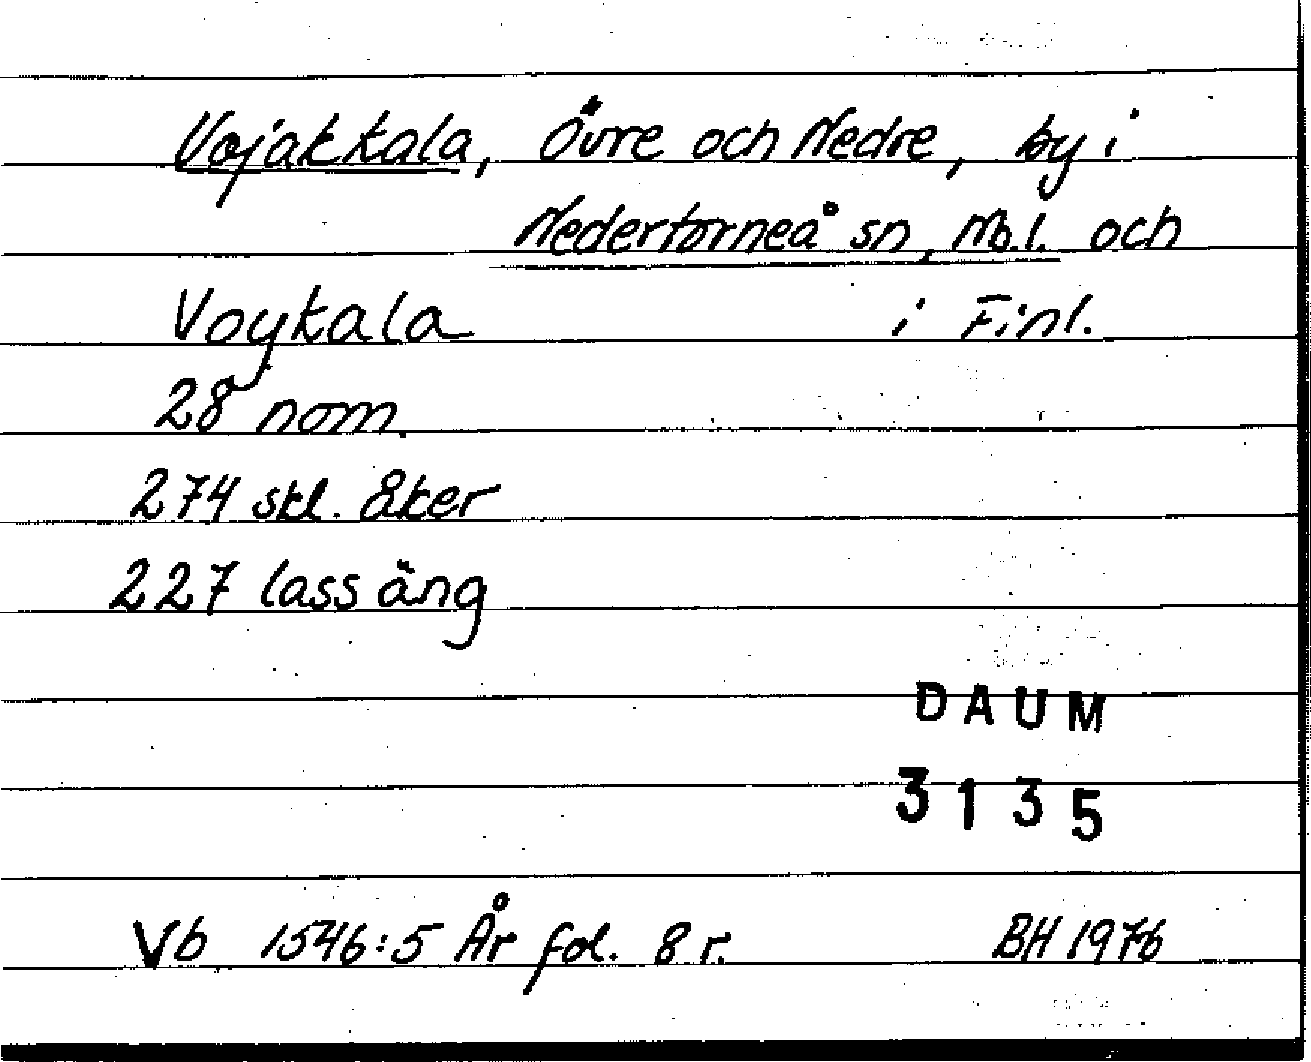 Vojakkala, Övre och Nedre, by i
Nedertorneå sn, Nb.l. och
Voykala i Finl.
28 nom.
274 skl. åker
227 lass äng
DAUM
3135
Vb 1546:5 År fol. 8 r. BH 1976